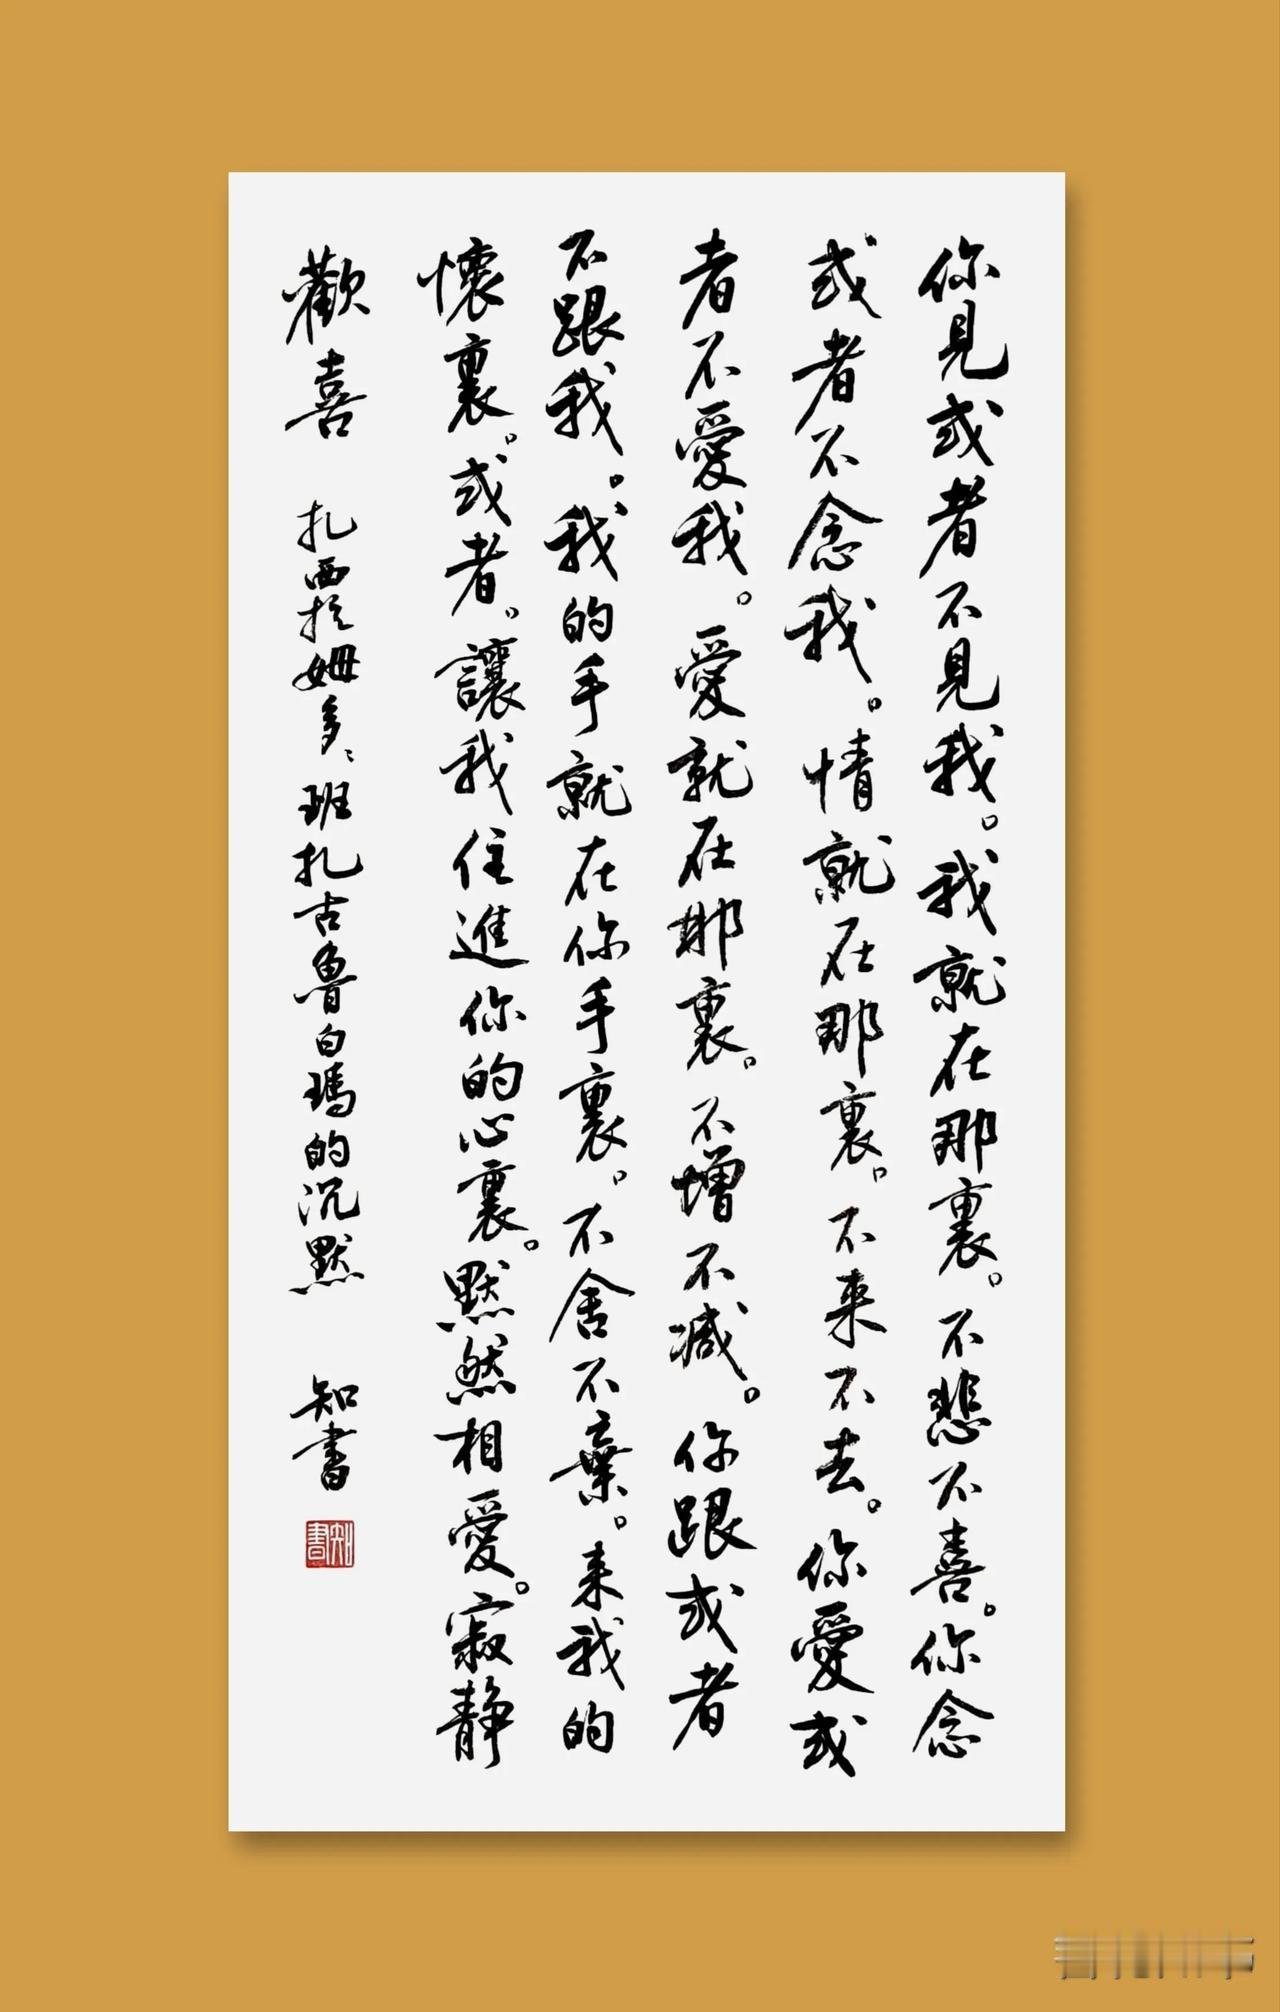 你見或者不見我。我就在那裏。不悲不喜。你念
或者不念我。情就在那裏。不来不去。你愛或
者不愛我。愛就在那裏。不增不减。你跟或者
不跟我。我的手就在你手裏。不舍不棄。来我的
懷裏。或者。讓我住進你的心裏。默然相愛。寂静
歡喜 扎西拉姆多多班扎古魯白瑪的沉默 知書
知書